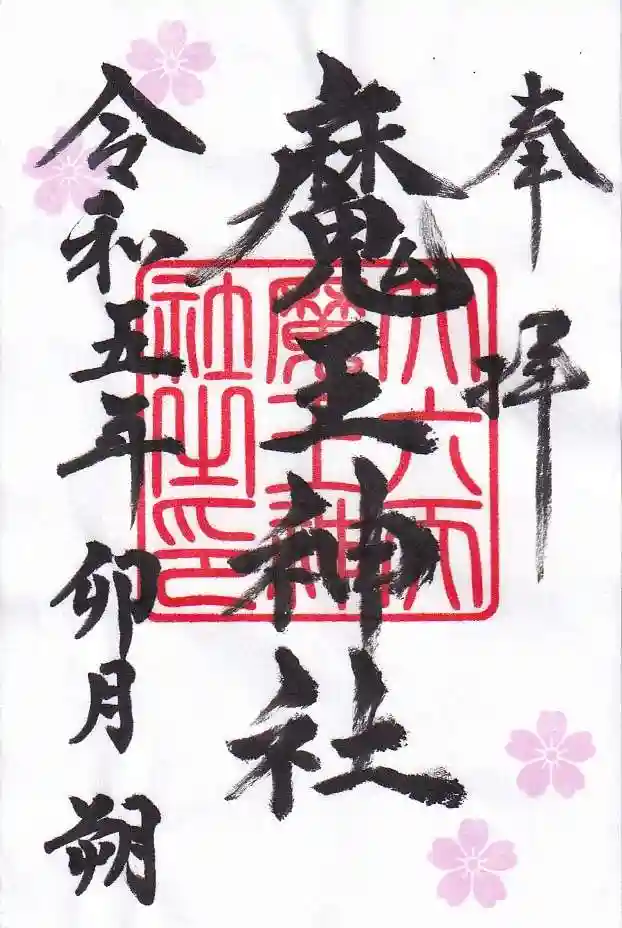 奉拝
魔王神社
大六天
魔王神
社之印
令和五年 卯月 朔